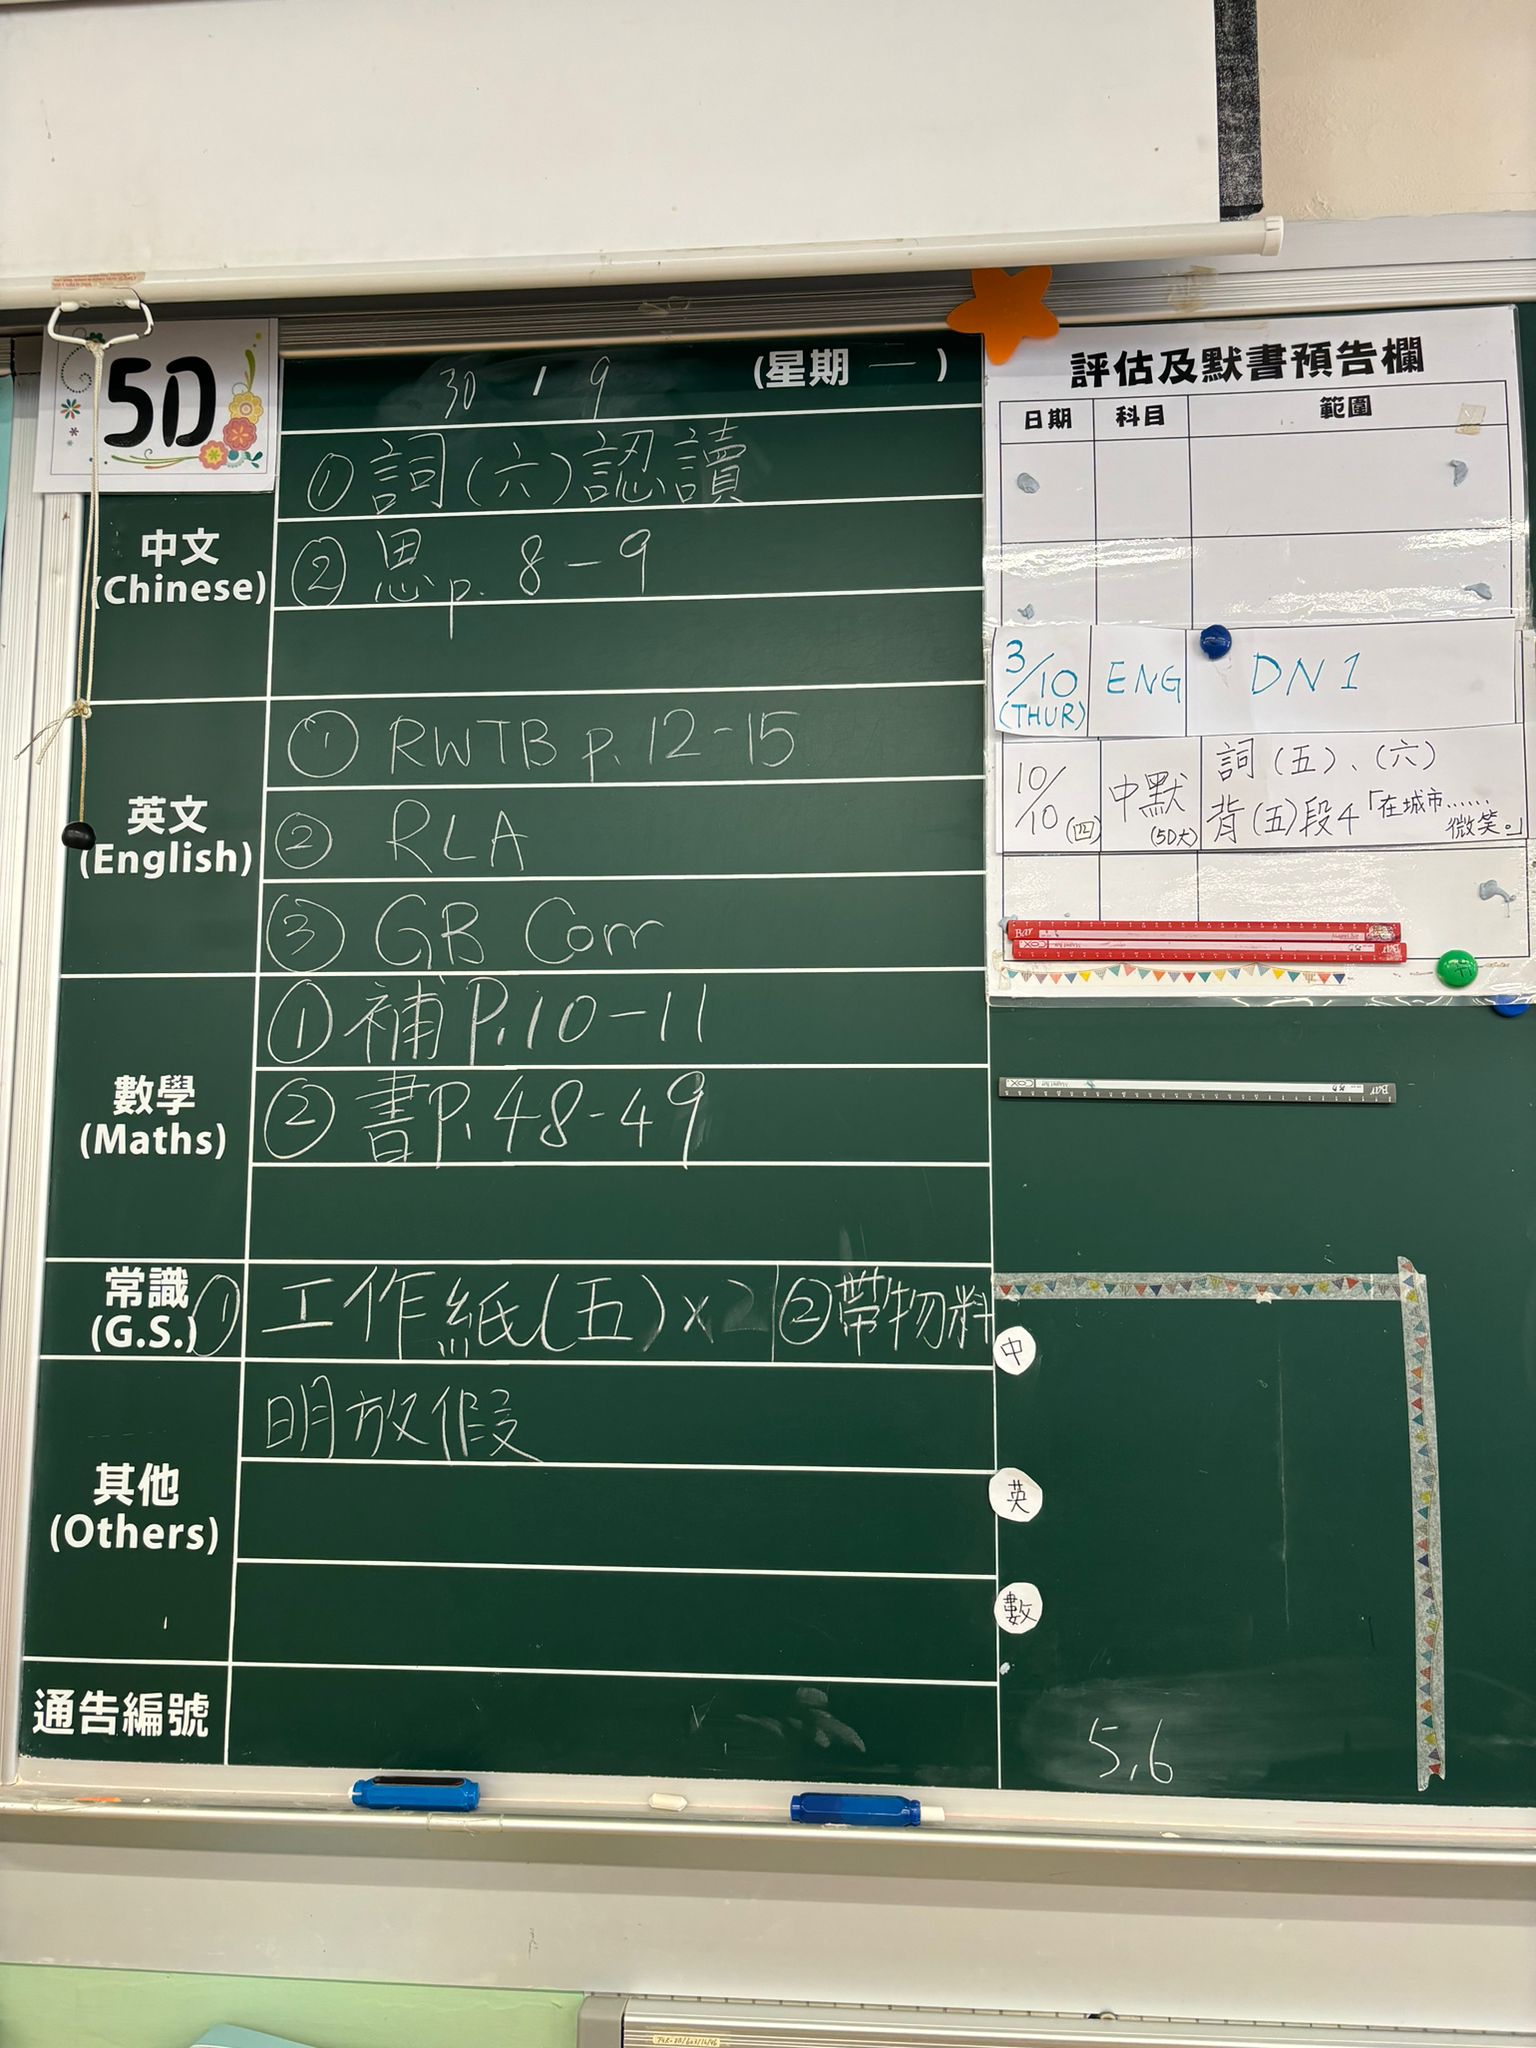 5D
30 / 9 (星期 一 )
中文
(Chinese)
① 詞(六)認讀
② 思 p. 8-9
英文
(English)
① RWTB p. 12-15
② RLA
③ GB Corr
數學
(Maths)
① 補 P.10-11
② 書 P.48-49
常識
(G.S.)
① 工作紙(五)×2 ② 帶物料
其他
(Others)
明放假
通告編號
評估及默書預告欄
日期 科目 範圍
3/10 (THUR) ENG DN 1
10/10 (四) 中默 (5D大) 詞(五)、(六)
背(五)段4「在城市……微笑。」
中
英
數
5,6